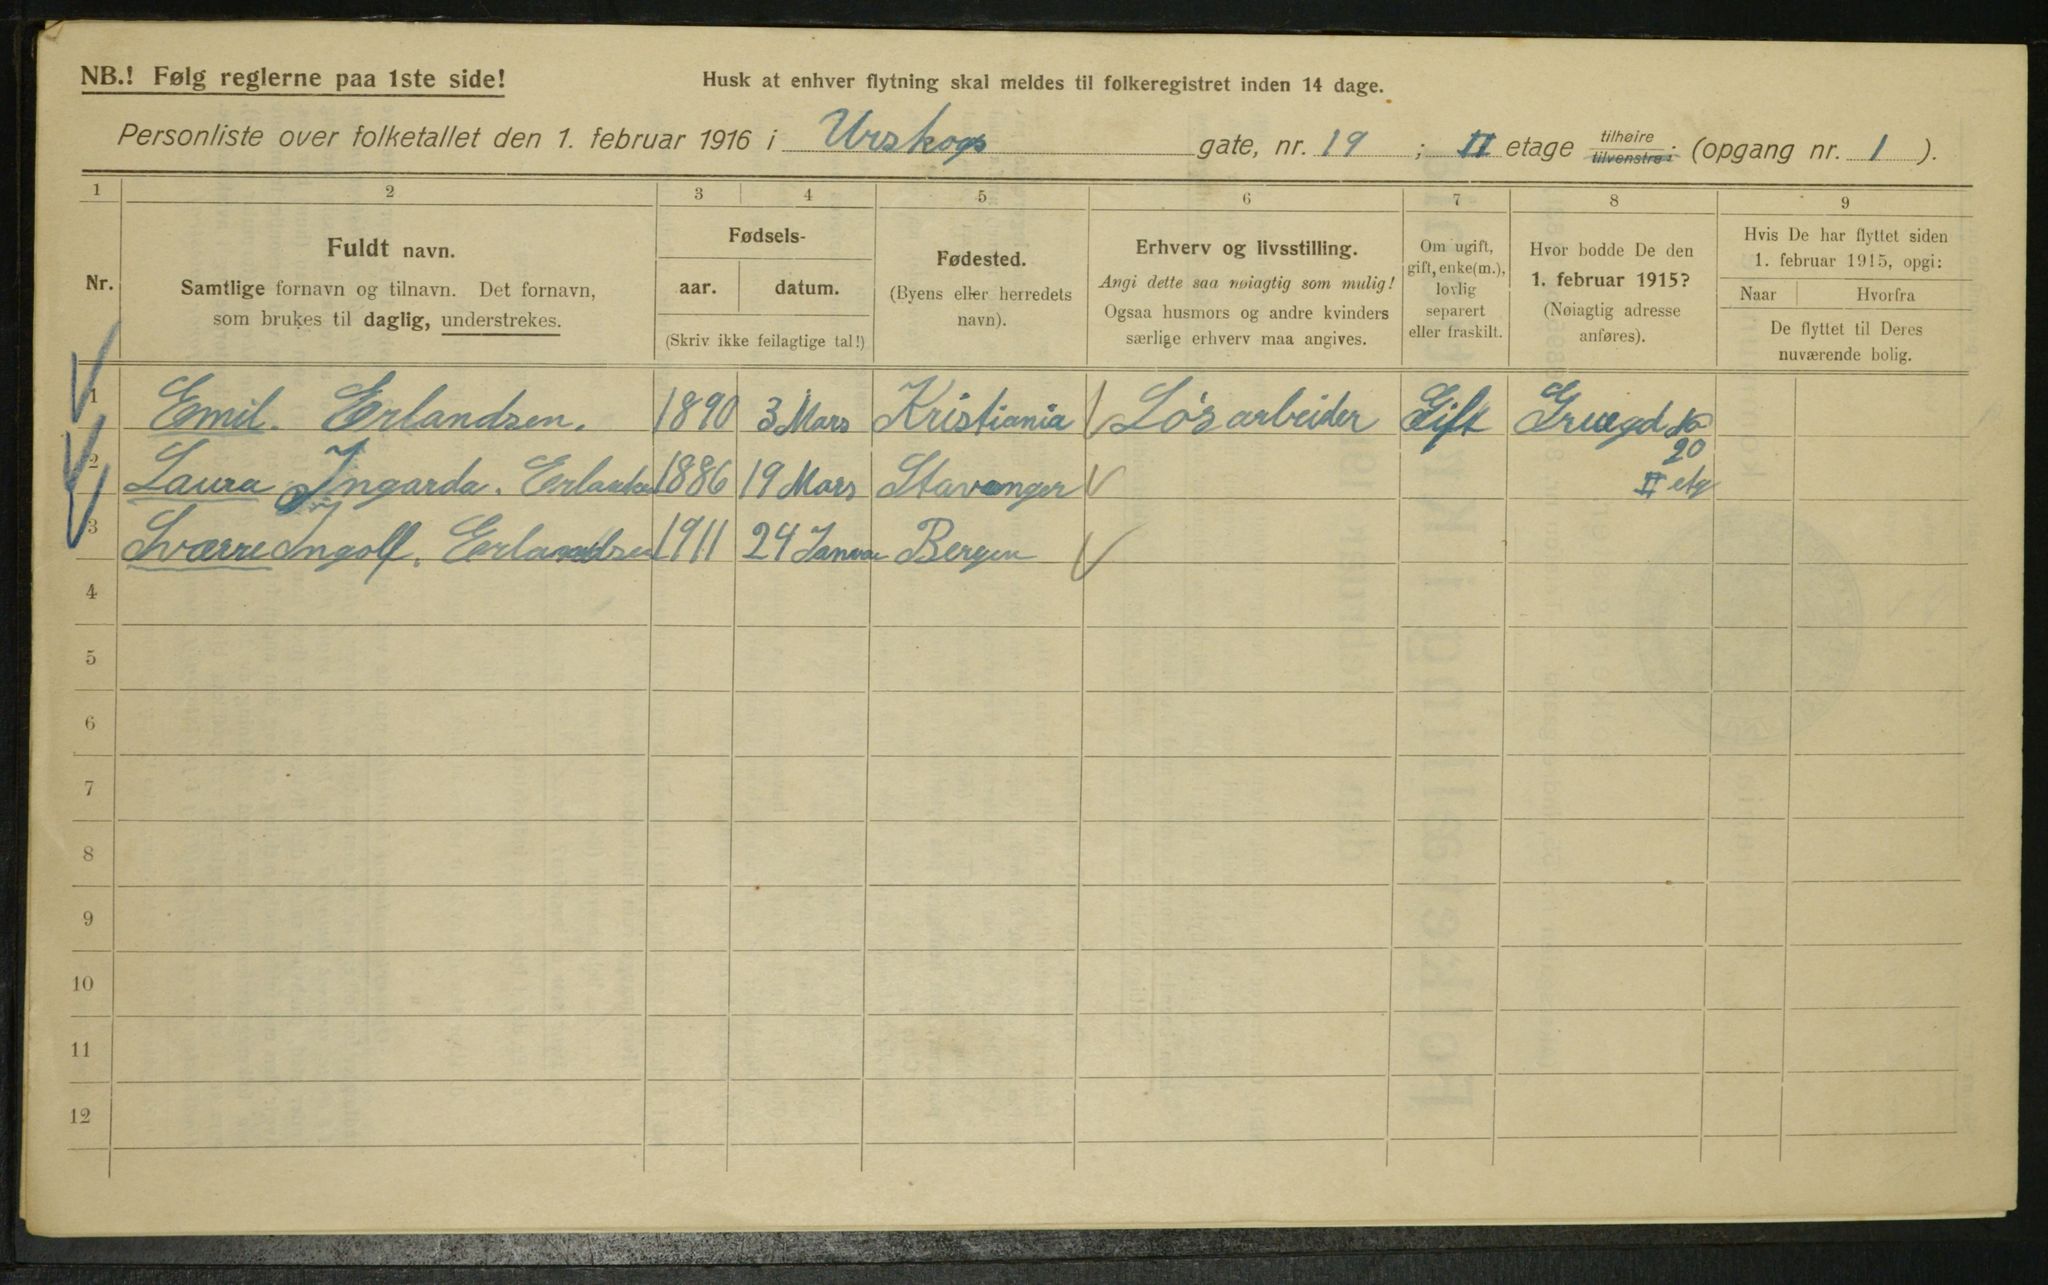 NB.! Følg reglerne paa 1ste side!
Husk at enhver flytning skal meldes til folkeregistret inden 14 dage.
Personliste over folketallet den 1. februar 1916 i Urskogs gate, nr. 19 ; II etage tilhøire tilvenstre: (opgang nr. 1 ).
1 2 3 4 5 6 7 8 9
Nr.
Fuldt navn.
Samtlige fornavn og tilnavn. Det fornavn,
som brukes til daglig, understrekes.
Fødsels-
aar. datum.
(Skriv ikke feilagtige tal!)
Fødested.
(Byens eller herredets
navn).
Erhverv og livsstilling.
Angi dette saa nøiagtig som mulig!
Ogsaa husmors og andre kvinders
særlige erhverv maa angives.
Om ugift,
gift, enke(m.),
lovlig
separert
eller fraskilt.
Hvor bodde De den
1. februar 1915?
(Nøiagtig adresse
anføres).
Hvis De har flyttet siden
1. februar 1915, opgi:
Naar Hvorfra
De flyttet til Deres
nuværende bolig.
1 Emil. Erlandsen. 1890 3 Mars Kristiania Løsarbeider Gift
20
2 Laura Ingarda. 1886 19 Mars Stavanger II etg
3 Sværre Ingolf. Erlandsen 1911 24 Bergen
4
5
6
7
8
9
10
11
12